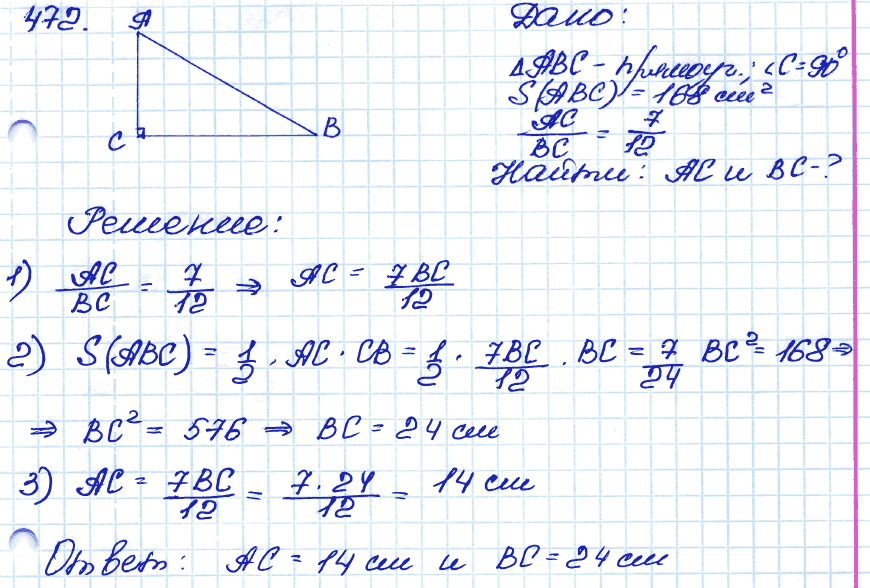 472.
A
C
B
Дано:
△ABC - прямоуг.; ∠C=90°
S(ABC) = 168 cm²
AC/BC = 7/12
Найти: AC и BC-?
Решение:
1) AC/BC = 7/12 ⇒ AC = 7BC/12
2) S(ABC) = 1/2 · AC · CB = 1/2 · 7BC/12 · BC = 7/24 BC² = 168 ⇒
⇒ BC² = 576 ⇒ BC = 24 см
3) AC = 7BC/12 = 7·24/12 = 14 см
Ответ: AC = 14 см и BC = 24 см